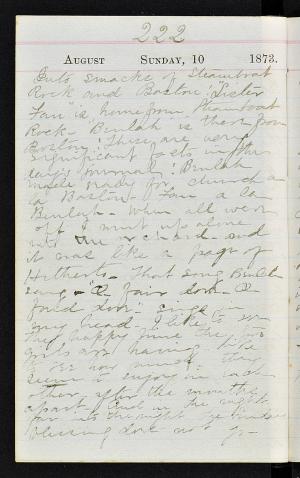 222
August Sunday, 10 1873.
Outs smacks of Steamboat
Rock and Boston. "Sister
Fan" is home from Steamboat
Rock - Beulah is there from
Boston. These are very
significant facts in this
day's journal. Beulah
made ready for church a
la Boston - Fan a la
Beulah. When all were
off I went up alone
orchard - and
it was like a page of
- That song Beulah
sang - "O fair dove O
fond dove" sings in
my head. I like to see
the happy time the two
girls are having
now much they
seem to enjoy in each
other, after the months
apart. And in the night
far into the night
blessing does not go -